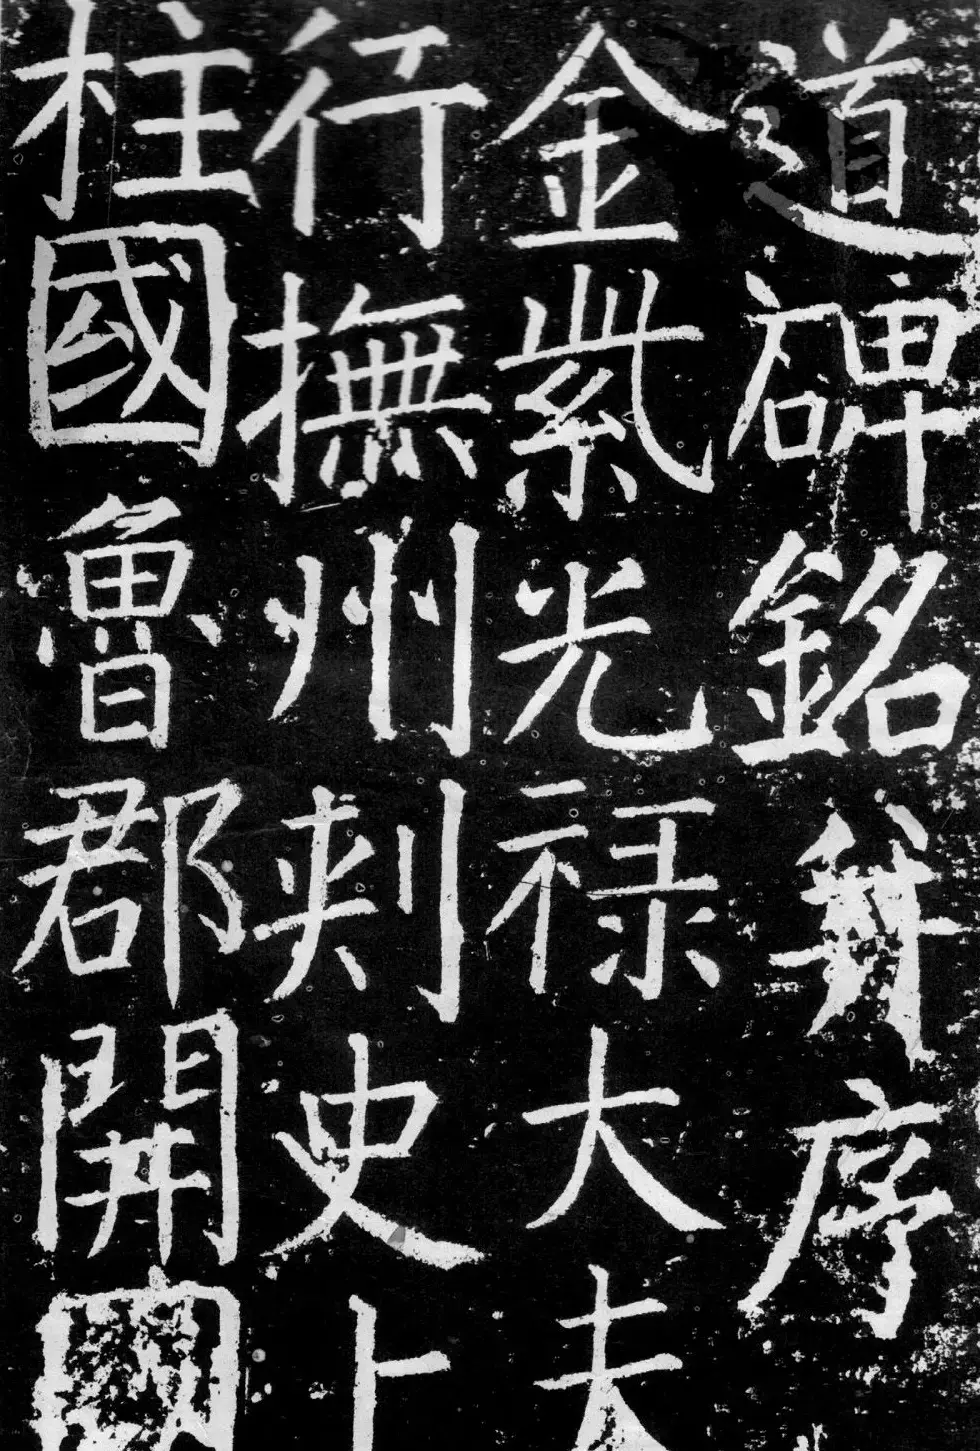 道碑銘并序
金紫光禄大夫
行撫州刺史上
柱國魯郡開國